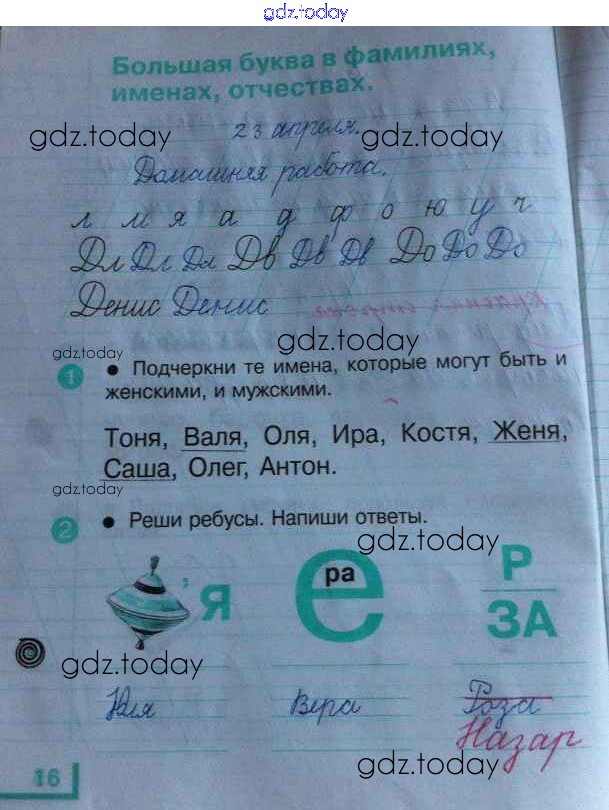 gdz.today
Большая буква в фамилиях,
именах, отчествах.
gdz.today 23 апреля. gdz.today
Домашняя работа.
л м я а д ф о ю у ч
Дл Дл Дл Дв Дв Дв До До До
Денис Денис
gdz.today gdz.today
1 • Подчеркни те имена, которые могут быть и
женскими, и мужскими.
Тоня, Валя, Оля, Ира, Костя, Женя,
Саша, Олег, Антон.
gdz.today
2 • Реши ребусы. Напиши ответы.
gdz.today
’Я е ра Р
ЗА
gdz.today
Юля Вера Роза
Назар
gdz.today
16